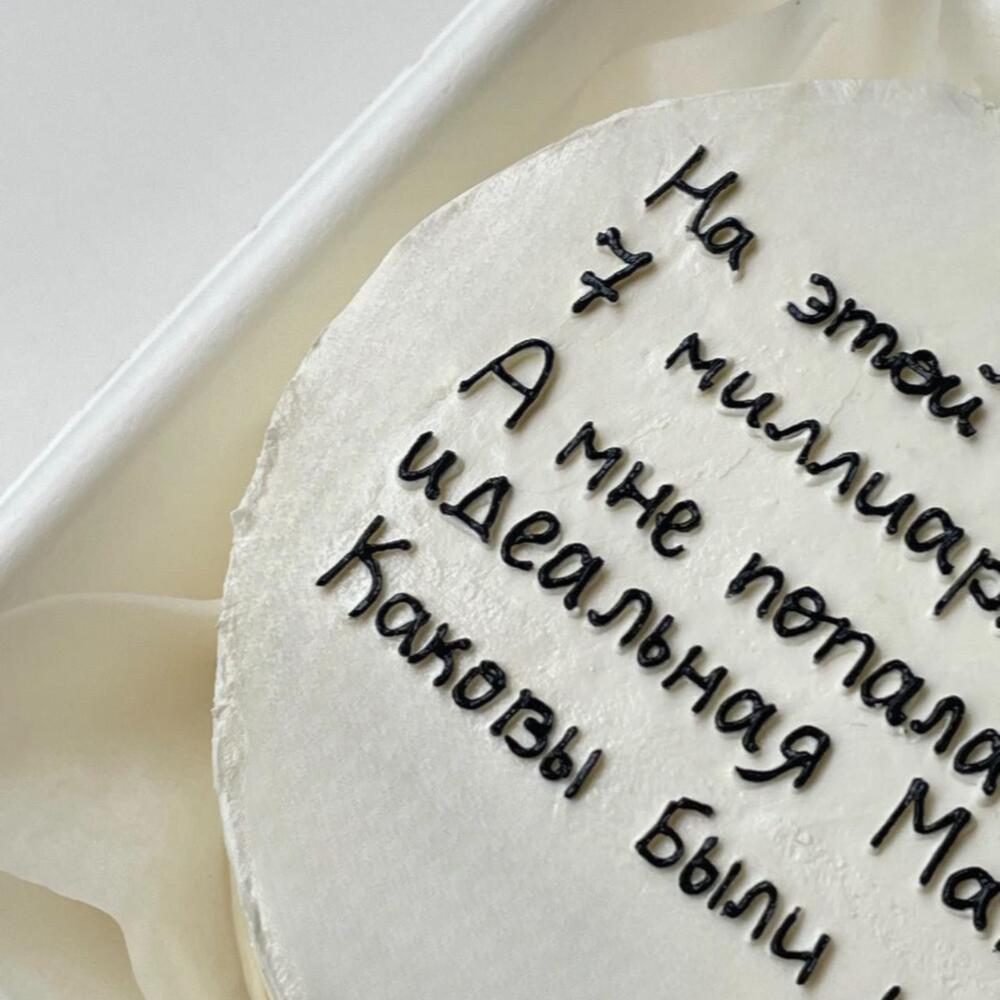 На этой
7 миллиар
А мне попала
идеальная Ма
Каковы были